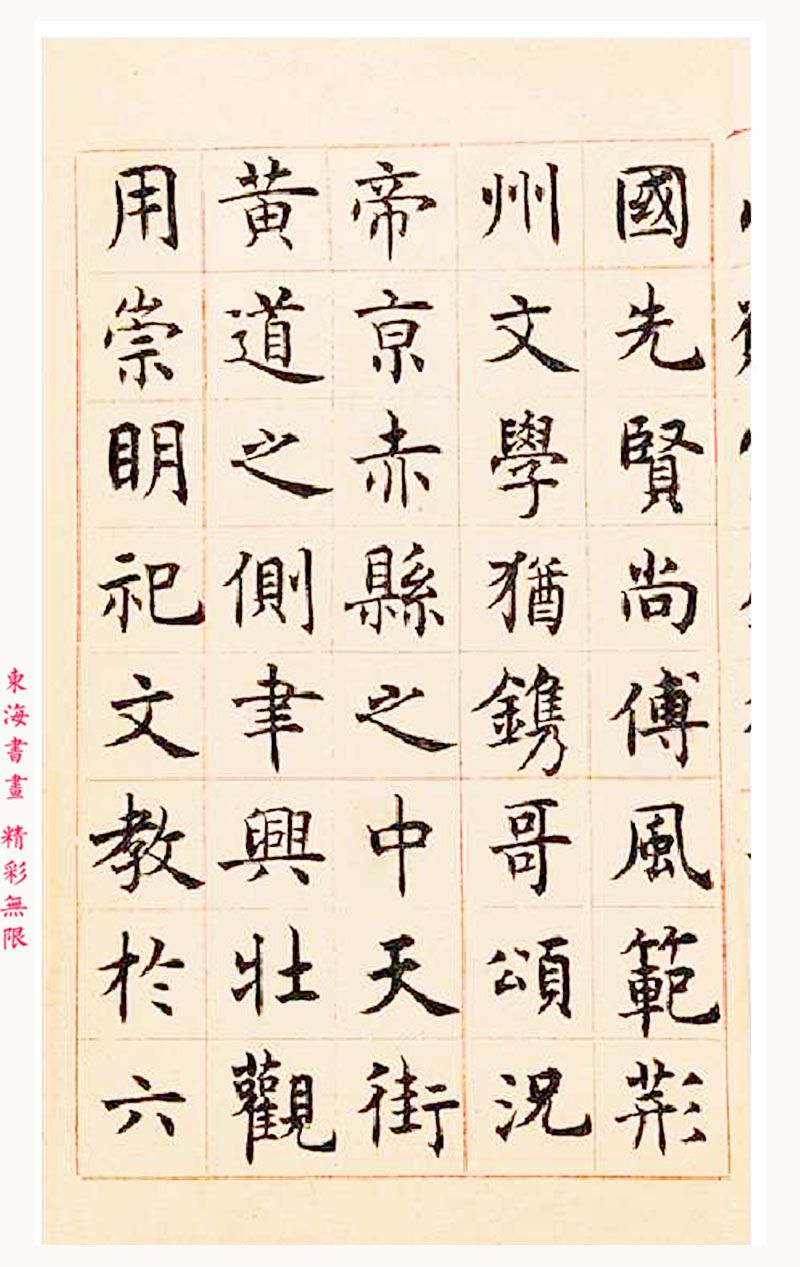 國先賢尚傅風範荊
州文學猶鐫哥頌況
帝京赤縣之中天街
黃道之側聿興壯觀
用崇明祀文教於六
東海書畫 精彩無限